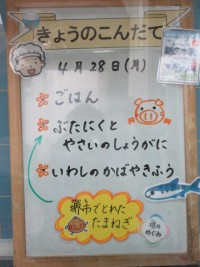 きょうのこんだて
4月28日(月)
ごはん
ぶたにくと
やさいのしょうがに
いわしのかばやきふう
堺市でとれた
たまねぎ
めぐみ